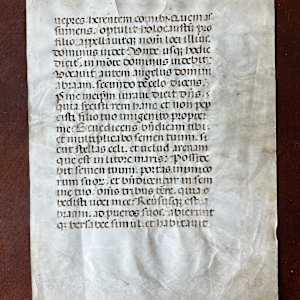 uepres herentem cornib; Quem as
sumens, optulit holocaustum pro
filio. appellauitq; nom loci illius.
dominus uidet. Unde usq; hodie
dicit, in monte dominus uidebit.
Uocauit autem angelus domini
abraam, secundo de celo dicens.
P me met ipsum iuraui dicit dns,
quia fecisti rem hanc et non pep
cisti filio tuo unigenito propter
me. Benedicens bndicam tibi
et multiplicabo semen tuum. si
cut stellas celi, et uelud arenam
que est in litore maris; Posside
bit semen tuum, portas inimico
rum suor; et bndicentur in semi
ne tuo, oms tribus tere, quia o
bedisti uoci mee; Reuersusq; est a
braam, ad pueros suos, abierunt
q; bersabee simul, et habitauit